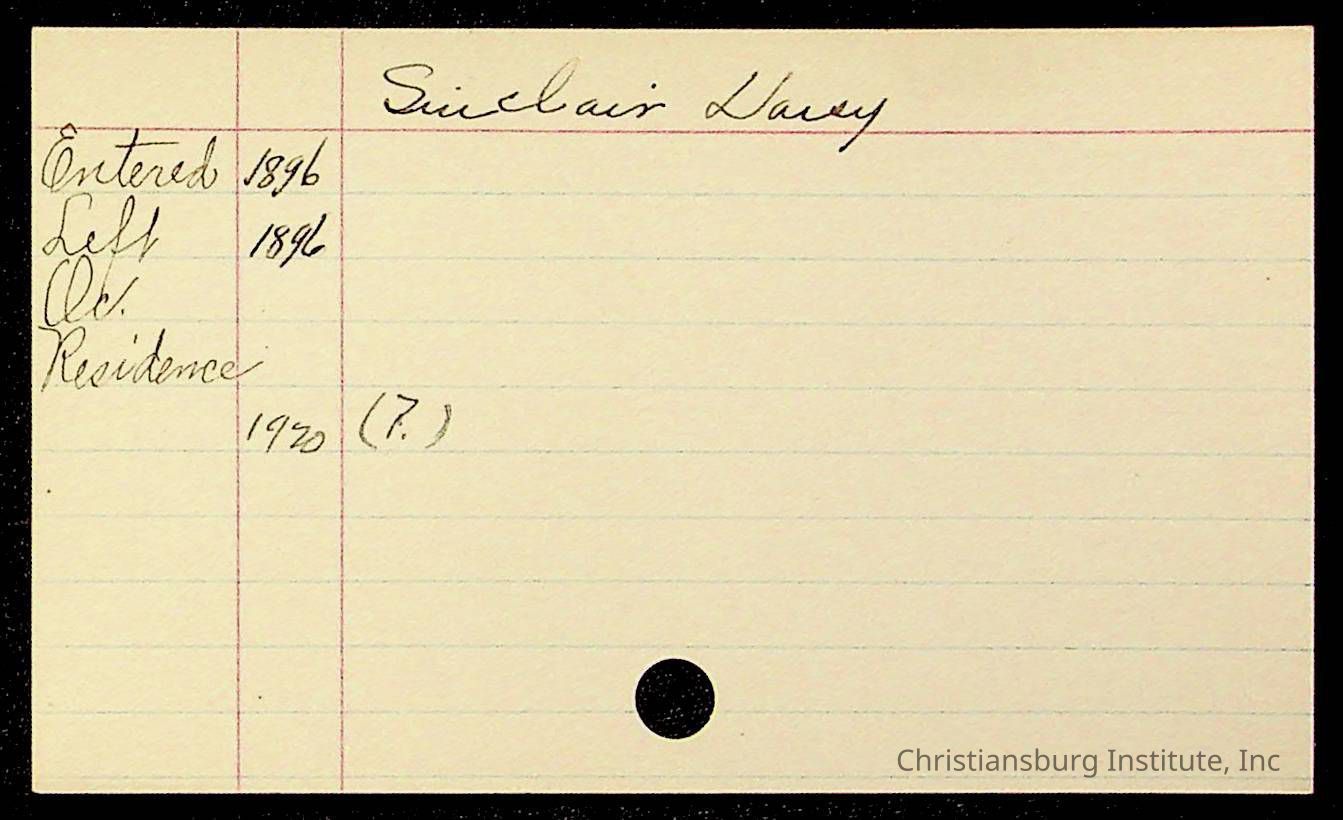 Sinclair Daisy
Entered 1896
Left 1896
Oc.
Residence
1920 (?.)
Christiansburg Institute, Inc